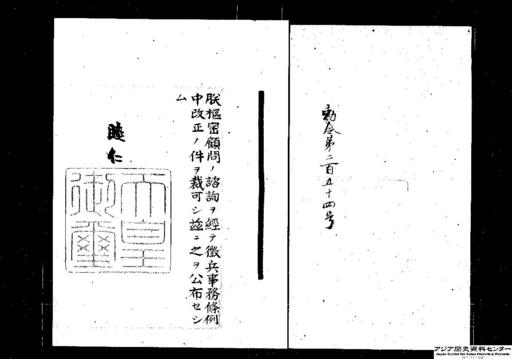 勅令第二百五十四号
朕樞密顧問ノ諮詢ヲ經テ徴兵事務條例
中改正ノ件ヲ裁可シ茲ニ之ヲ公布セシ
ム
睦仁
天皇
御璽
アジア歴史資料センター
Japan Center for Asian Historical Records